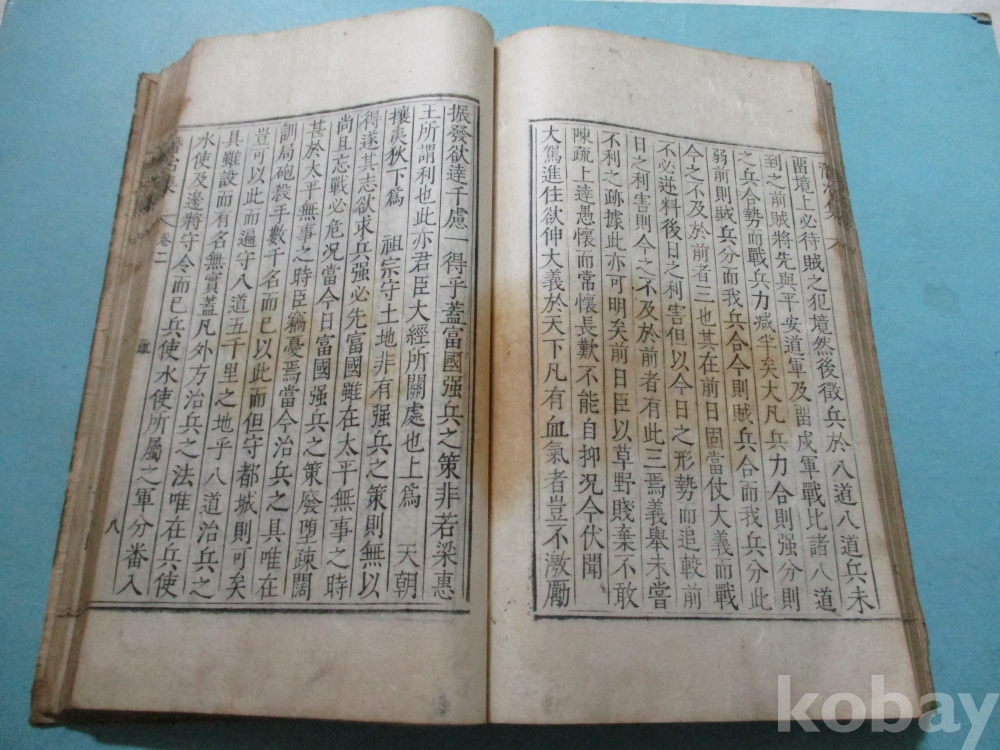 留境上必待賊之犯境然後徵兵於八道八道兵未
到之前賊將先與平安道軍及留戍軍戰比諸八道
之兵合勢而戰兵力减半矣大凡兵力合則强分則
弱前則賊兵分而我兵合今則賊兵合而我兵分此
今之不及於前者三也其在前日固當仗大義而戰
不必逆料後日之利害但以今日之形勢而追較前
日之利害則今之不及於前者有此三焉義舉未嘗
不利之跡據此亦可明矣前日臣以草野賤棄不敢
陳疏上達愚懷而常懷長歎不能自抑况今伏聞
大駕進住欲伸大義於天下凡有血氣者豈不激勵
振發欲達千慮一得乎蓋富國强兵之策非若梁惠
王所謂利也此亦君臣大經所關處也上爲 天朝
攘長狄下爲 祖宗守土地非有强兵之策則無以
得遂其志欲求兵强必先富國雖在太平無事之時
尚且忘戰必危况當今日富國强兵之策廢墮疎闊
甚於太平無事之時臣竊憂焉當今治兵之具唯在
訓局砲殺手數千名而已以此而但守都城則可矣
豈可以此而遍守八道五千里之地乎八道治兵之
具雖設而有名無實蓋凡外方治兵之法唯在兵使
水使及邊將守令而已兵使水使所屬之軍分番入
卷二
八
kobay